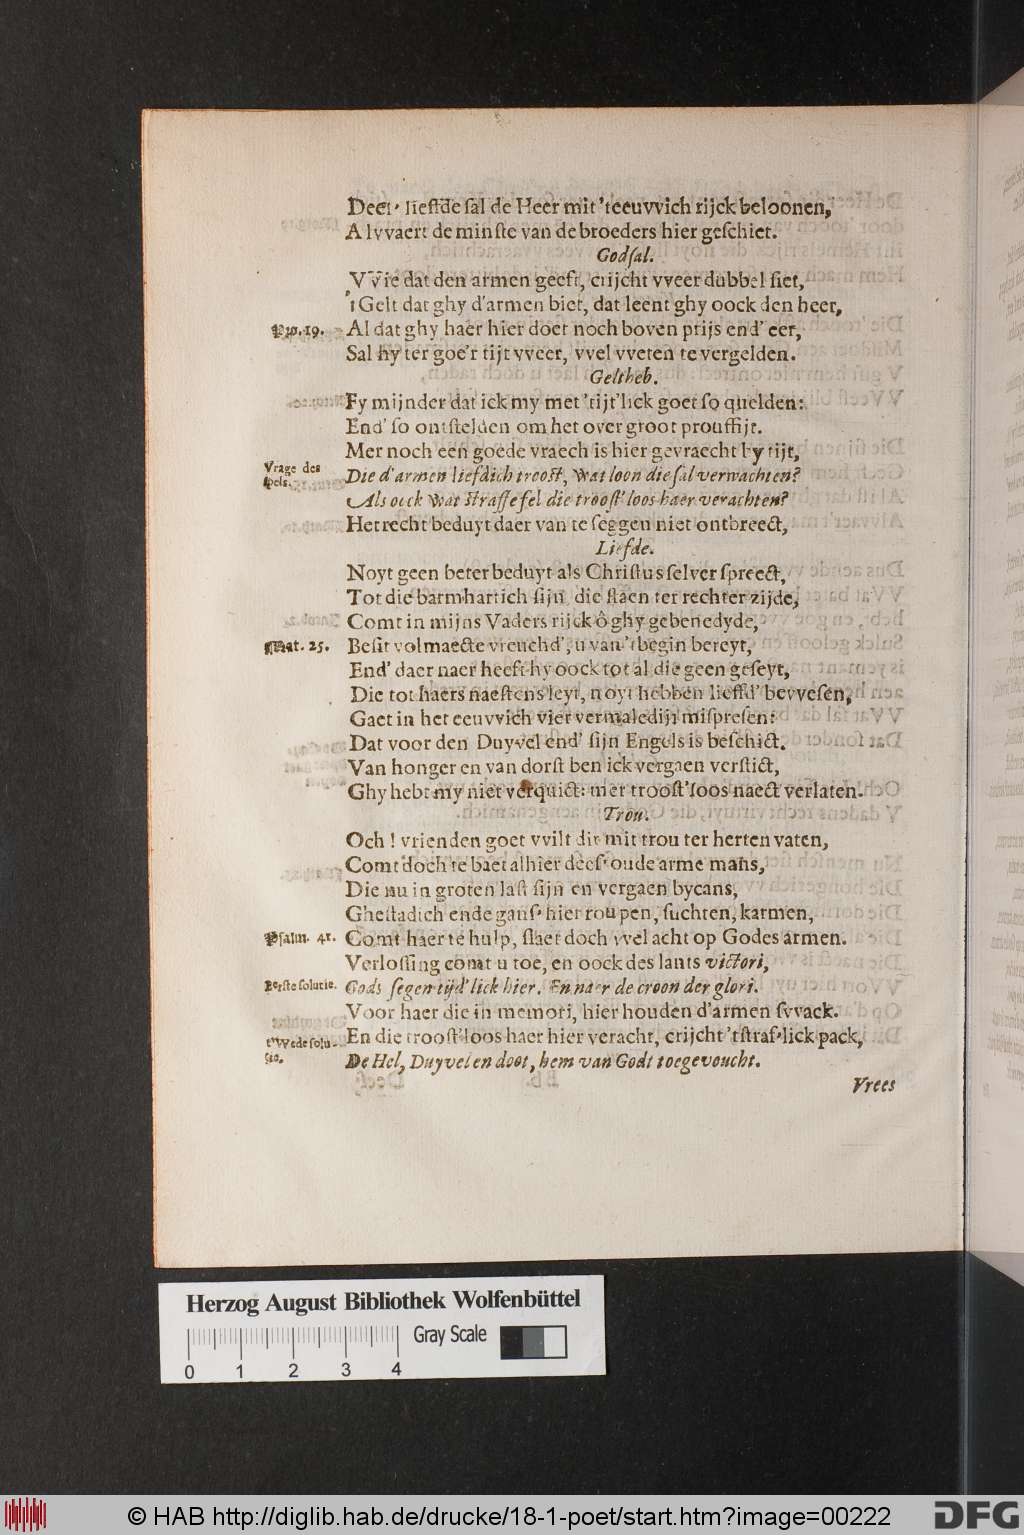 Deeſ' lieſtde ſal de Heer mit 'teeuvvich rijck beloonen,
Alvvaert de minſte van de broeders hier geſchiet.
Godſal.
VVie dat den armen geeft, crijcht vveer dubbel ſiet,
'tGelt dat ghy d'armen biet, dat leent ghy oock den heer,
Pro. 19. Al dat ghy haer hier doet noch boven prijs end' eer,
Sal hy ter goe'r tijt vveer, vvel vveten te vergelden.
Geltheb.
Fy mijnder dat ick my met 'tijt'lick goet ſo quelden:
End' ſo ontſtelden om het over groot prouffijt.
Mer noch een goede vraech is hier gevraecht by tijt,
Vrage des
ſpels. Die d'armen liefdich trooſt, wat loon die ſal verwachten?
Als oock wat ſtraffe ſel die trooſt'loos haer verachten?
Het recht beduyt daer van te ſeggen niet ontbreect,
Liefde.
Noyt geen beter beduyt als Chriſtus ſelver ſpreect,
Tot die barmhartich ſijn die ſtaen ter rechter zijde,
Comt in mijns Vaders rijck ô ghy gebenedyde,
Mat. 25. Beſit volmaecte vreuchd', u van 't begin bereyt,
End' daer naer heeft hy oock tot al die geen geſeyt,
Die tot haers naeſtens leyt, noyt hebben lieffd' bevveſen,
Gaet in het eeuvvich vier vermaledijt miſpreſen:
Dat voor den Duyvel end' ſijn Engels is beſchict.
Van honger en van dorſt ben ick vergaen verſtict,
Ghy hebt my niet verquict: met trooſt'loos naect verlaten.
Trou.
Och! vrienden goet vvilt dit mit trou ter herten vaten,
Comt doch te baet alhier deeſ' oude arme mans,
Die nu in groten laſt ſijn en vergaen bycans,
Gheſtadich ende gans' hier roupen, ſuchten, karmen,
Pſalm. 41. Comt haer te hulp, ſlaet doch vvel acht op Godes armen.
Verloſſing comt u toe, en oock des lants victori,
Eerſte ſolutie. Gods ſegen tijd'lick hier. En naer de croon der glori.
Voor haer die in memori, hier houden d'armen ſvvack.
t'Wede ſolu-
tie. En die trooſt'loos haer hier veracht, crijcht 'tſtraf'lick pack,
De Hel, Duyvel en doot, hem van Godt toegevoucht.
Vrees
Herzog August Bibliothek Wolfenbüttel
Gray Scale
0 1 2 3 4
© HAB http://diglib.hab.de/drucke/18-1-poet/start.htm?image=00222
DFG